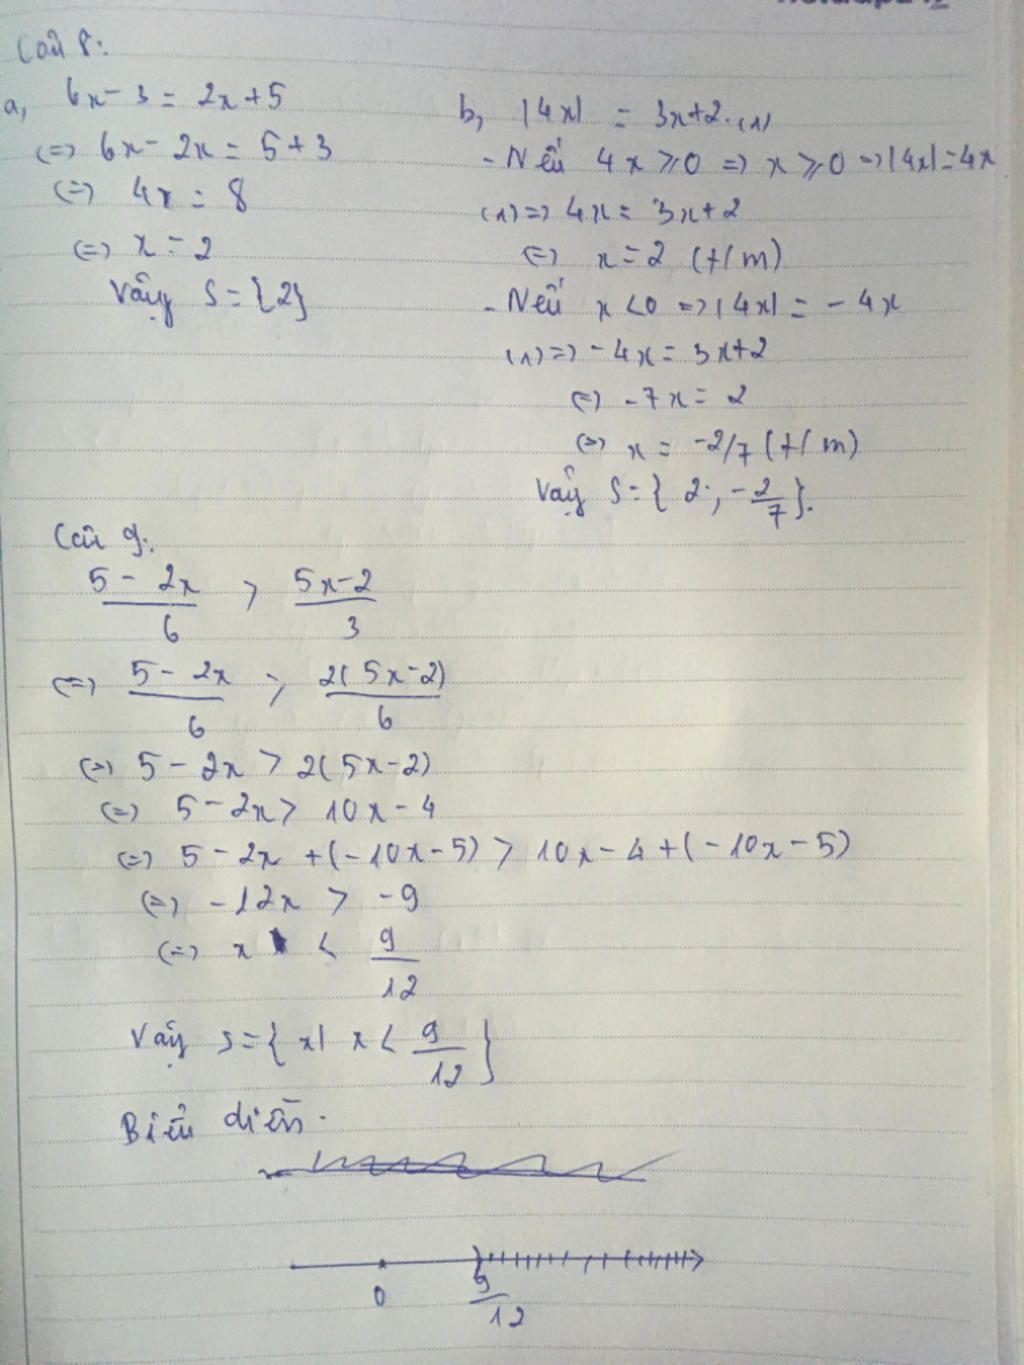 Câu 8:
a, 6x - 3 = 2x + 5
(=) 6x - 2x = 5 + 3
(=) 4x = 8
(=) x = 2
Vậy S = {2}
b, |4x| = 3x + 2. (1)
- Nếu 4x ⩾ 0 => x ⩾ 0 => |4x| = 4x
(1) => 4x = 3x + 2
(=) x = 2 (t/m)
- Nếu x < 0 => |4x| = - 4x
(1) => - 4x = 3x + 2
(=) - 7x = 2
(=) x = -2/7 (t/m)
Vậy S = { 2 ; - 2/7 }.
Câu 9:
5 - 2x / 6 > 5x - 2 / 3
(=) 5 - 2x / 6 > 2(5x - 2) / 6
(=) 5 - 2x > 2(5x - 2)
(=) 5 - 2x > 10x - 4
(=) 5 - 2x + (- 10x - 5) > 10x - 4 + (- 10x - 5)
(=) - 12x > - 9
(=) x < 9/12
Vậy S = { x| x < 9/12 }
Biểu diễn.
0 9/12